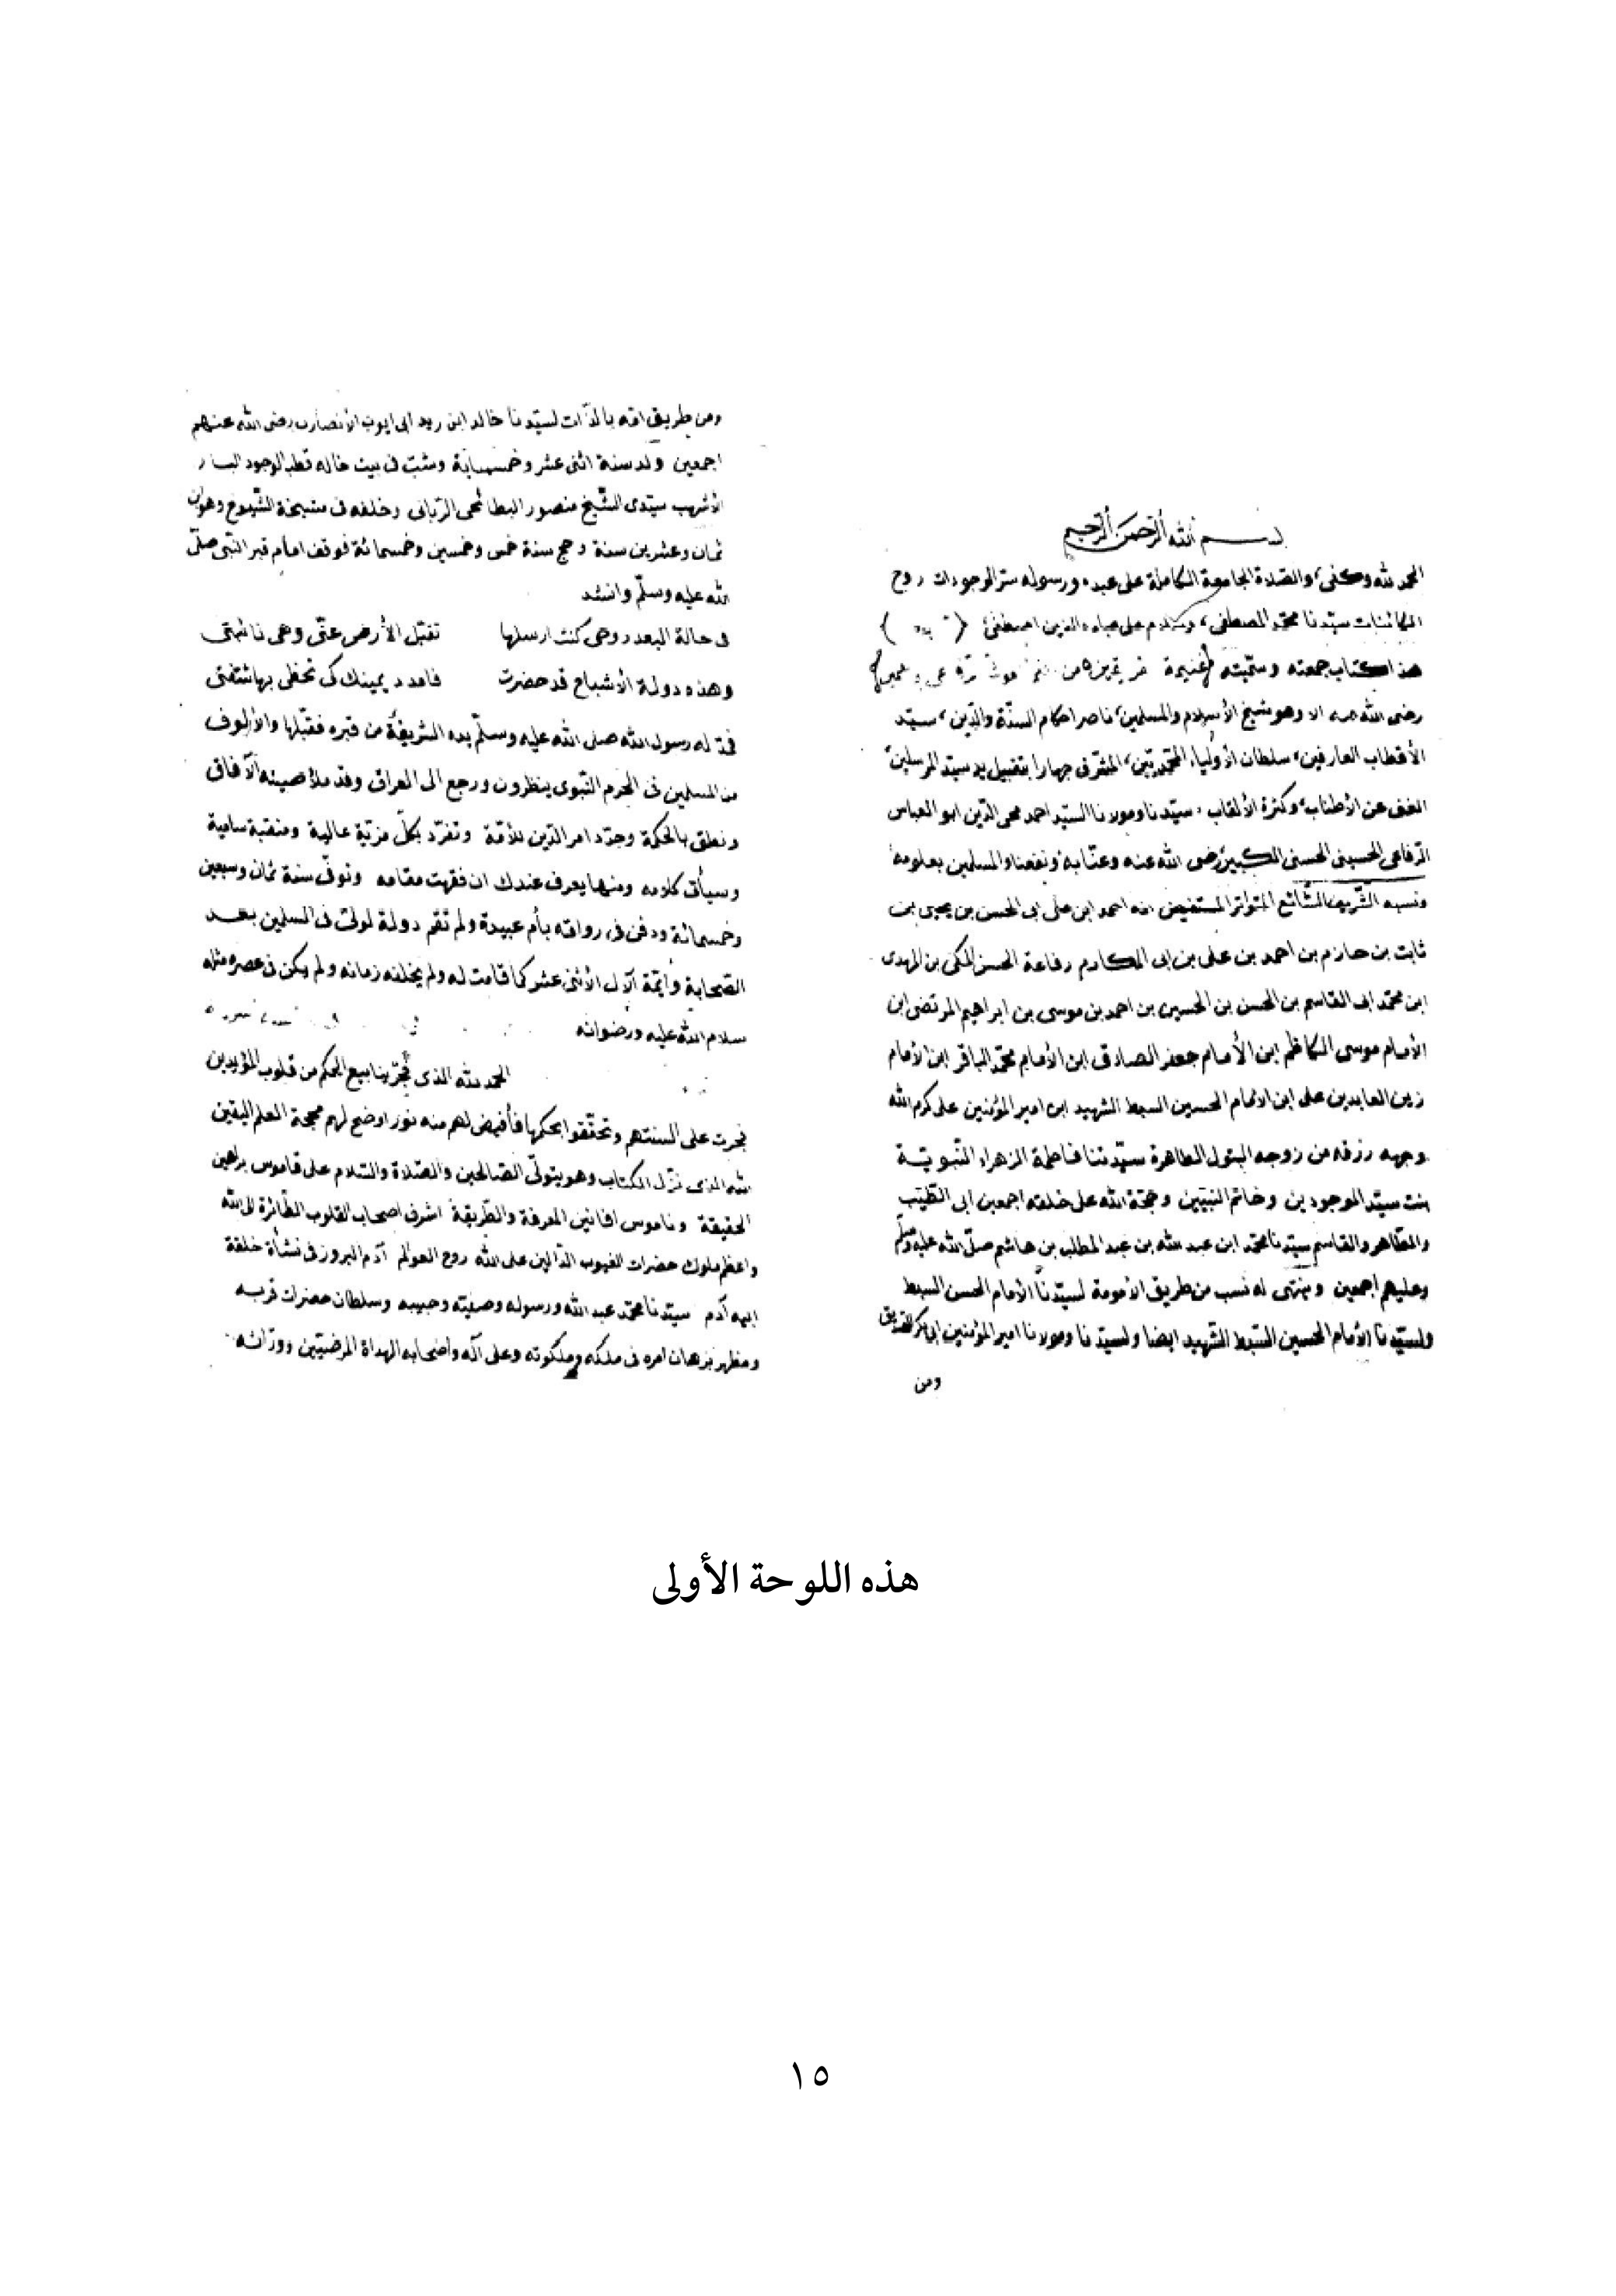 بسم الله الرحمن الرحيم
الحمد لله وكفى، والصلاة الجامعة الكاملة على عبده ورسوله سر الموجودات روح
الكائنات سيدنا محمد المصطفى، وسلام على عباده الذين اصطفى
هذا كتاب جمعته وسميته
رضى الله عنه الا وهو شيخ الأسلام والمسلمين، ناصر احكام السنة والدين، سيد
الأقطاب العارفين، سلطان الأولياء المحمديين، المشرف جهارا بتقبيل يد سيد المرسلين
الغنى عن الأطناب وكثرة الألقاب، سيدنا ومولانا السيد احمد محى الدين ابو العباس
الرفاعى الحسينى الحسنى الكبير رضى الله عنه وعنا به ونفعنا والمسلمين بعلومه
ونسبه الشريف الشائع المتواتر المستفيض انه احمد ابن على ابى الحسن بن يحيى بن
ثابت بن حازم بن احمد بن على بن ابى المكارم رفاعة الحسن المكى بن المهدى
ابن محمد ابى القاسم بن الحسن بن الحسين بن احمد بن موسى بن ابراهيم المرتضى ابن
الأمام موسى الكاظم ابن الأمام جعفر الصادق ابن الأمام محمد الباقر ابن الأمام
زين العابدين على ابن الامام الحسين السبط الشهيد ابن امير المؤمنين على كرم الله
وجهه رزقه من زوجه البتول الطاهرة سيدتنا فاطمة الزهراء النبوية
بنت سيد الموجودين وخاتم النبيين وحجة الله على خلقه اجمعين ابى الطيب
والطاهر والقاسم سيدنا محمد ابن عبد الله بن عبد المطلب بن هاشم صلى الله عليه وسلم
وعليهم اجمعين وينتهى له نسب من طريق الأمومة لسيدنا الأمام الحسن السبط
ولسيدنا الأمام الحسين السبط الشهيد ايضا ولسيدنا ومولانا امير المؤمنين ابى بكر الصديق
ومن
ومن طريق امه بالذات لسيدنا خالد ابن زيد ابى ايوب الأنصارى رضى الله عنهم
اجمعين ولد سنة اثنى عشر وخمسماية وشب فى بيت خاله قطب الوجود الباز
الأشهب سيدى الشيخ منصور البطائحى الربانى وخلفه فى مشيخة الشيوخ وهو ابن
ثمان وعشرين سنة وحج سنة خمس وخمسين وخمسمائة فوقف امام قبر النبى صلى
الله عليه وسلم وانشد
فى حالة البعد روحى كنت ارسلها تقبل الأرض عنى وهى نائبتى
وهذه دولة الأشباح قد حضرت فامدد يمينك كى تحظى بها شفتى
فمد له رسول الله صلى الله عليه وسلم يده الشريفة من قبره فقبلها والألوف
من المسلمين فى الحرم النبوى ينظرون ورجع الى العراق وقد ملأ صيته الآفاق
ونطق بالحكمة وجدد امر الدين للأمة وتفرد بكل مرتبة عالية ومنقبة سامية
وسيأتى كلامه ومنها يعرف عندك ان فقهت مقامه وتوفى سنة ثمان وسبعين
وخمسمائة ودفن فى رواقه بأم عبيدة ولم تقم دولة لولى فى المسلمين بعد
الصحابة وأئمة الآل الأثنى عشر كما قامت له ولم يخلفه زمانه ولم يكن فى عصره مثله
سلام الله عليه ورضوانه
الحمد لله الذى فجر ينابيع الحكم من قلوب المؤيدين
فجرت على السنتهم وتحققوا بحكمها فأفيض لهم منه نور اوضح لهم محجة العلم اليقين
لله الذى نزل الكتاب وهو يتولى الصالحين والصلاة والسلام على قاموس براهين
الحقيقة وناموس افانين المعرفة والطريقة اشرف اصحاب القلوب الطائرة الى الله
واعظم ملوك حضرات الغيوب الدالين على الله روح العوالم آدم البروز فى نشأة خلقة
ابيه آدم سيدنا محمد عبد الله ورسوله وصفيه وحبيبه وسلطان حضرات قربه
ومظهر برهان امره فى ملكه وملكوته وعلى آله واصحابه الهداة المرضيين ووراثه
هذه اللوحة الأولى
١٥